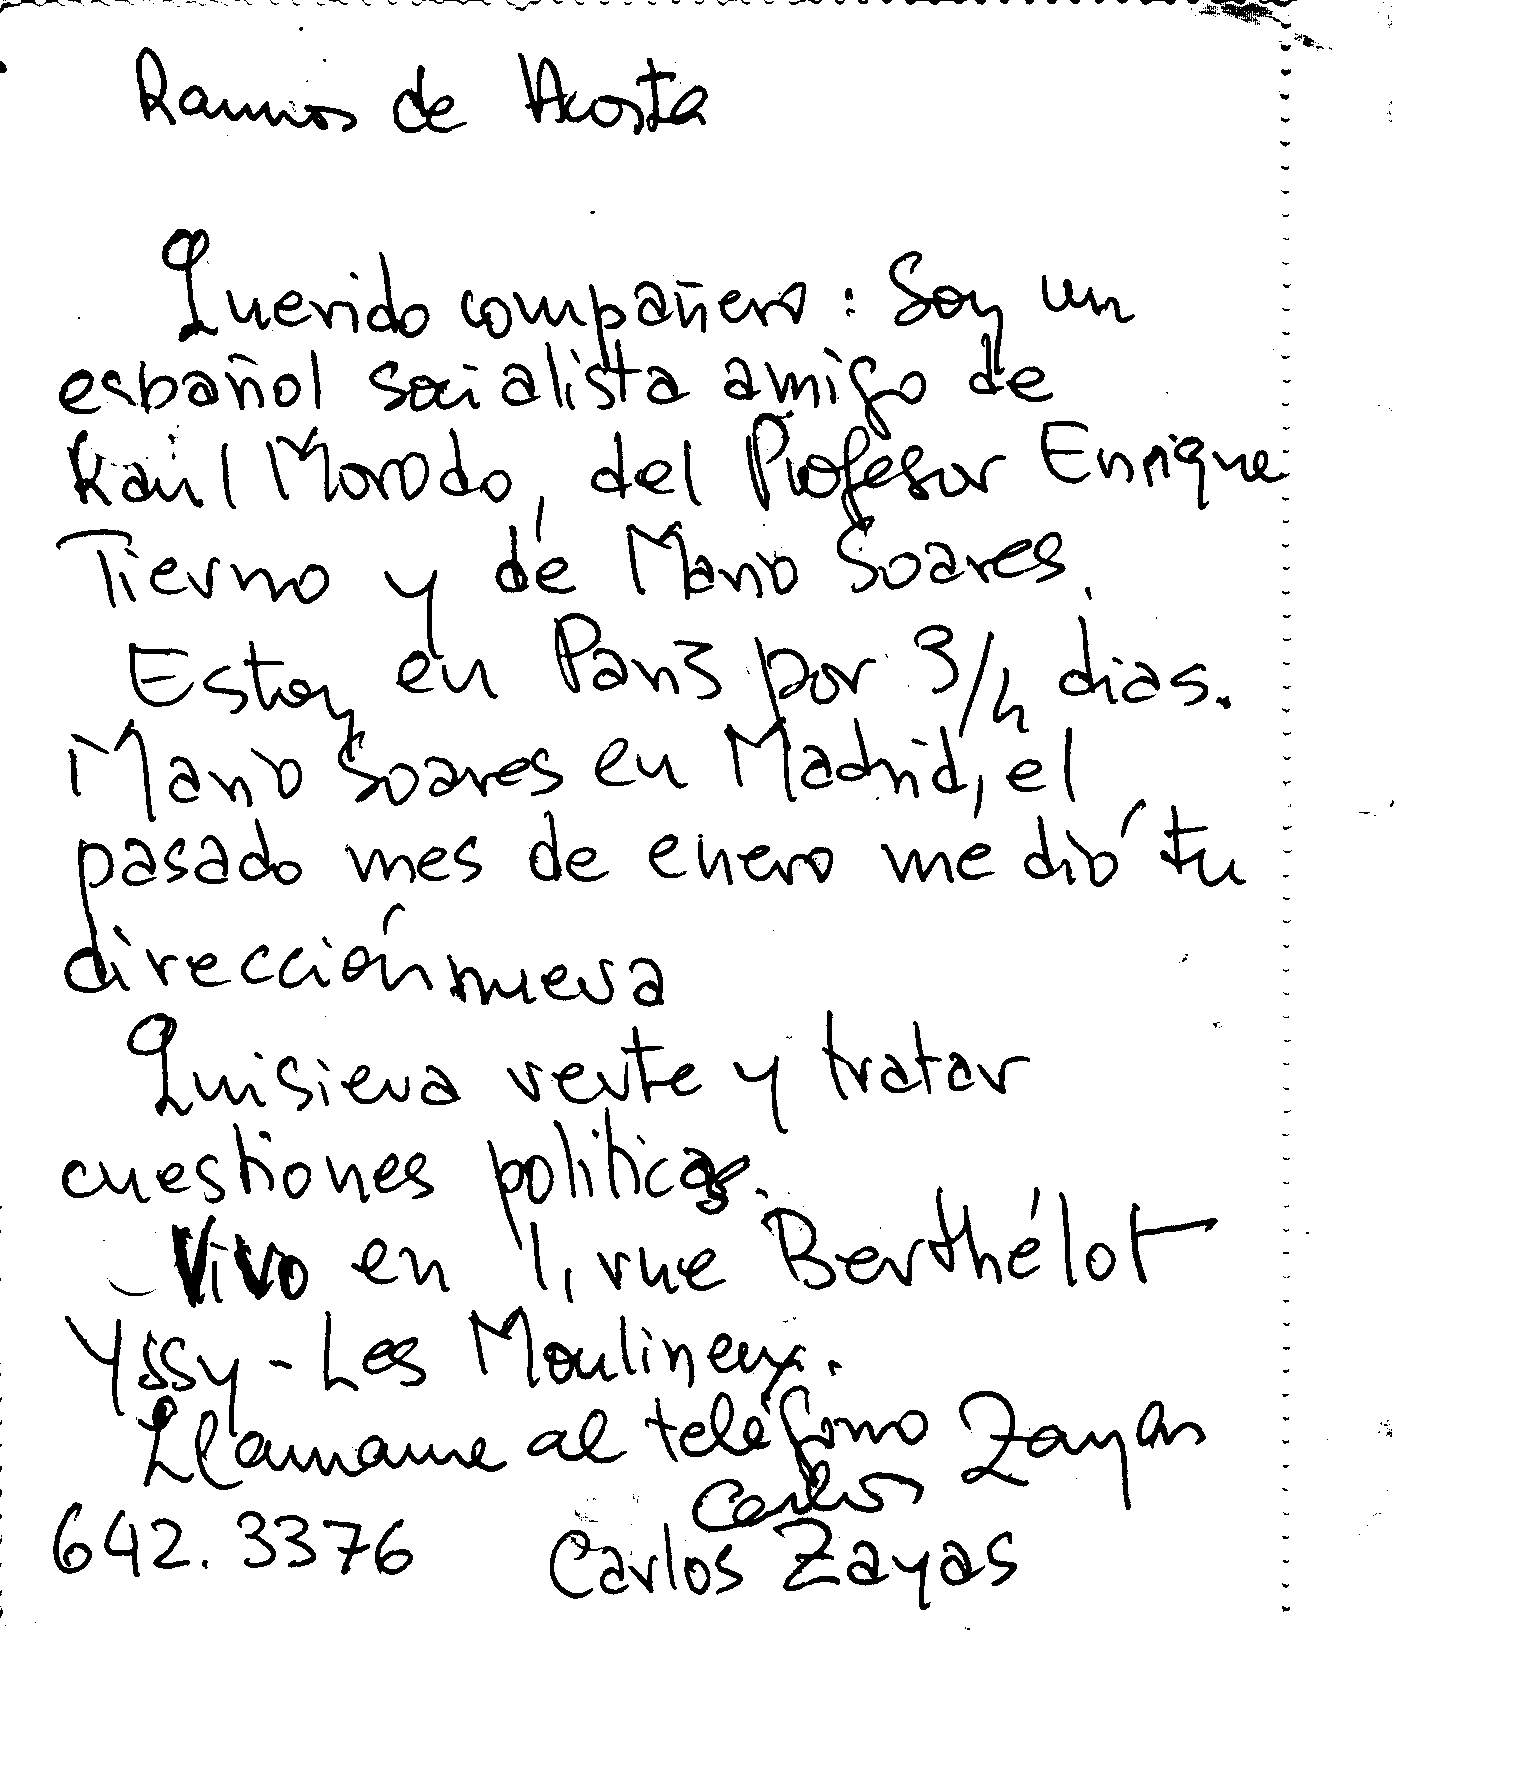 Ramos de Acosta
Querido compañero: Soy un
español socialista amigo de
Raúl Morodo, del Profesor Enrique
Tierno y de Mario Soares.
Estoy en París por 3/4 dias.
Mario Soares en Madrid, el
pasado mes de enero me dió tu
dirección nueva
Quisiera verte y tratar
cuestiones politicas.
Vivo en 1, rue Berthélot
Yssy-Les Moulineux.
Llamame al teléfono
642.3376
Carlos Zayas
Carlos Zayas